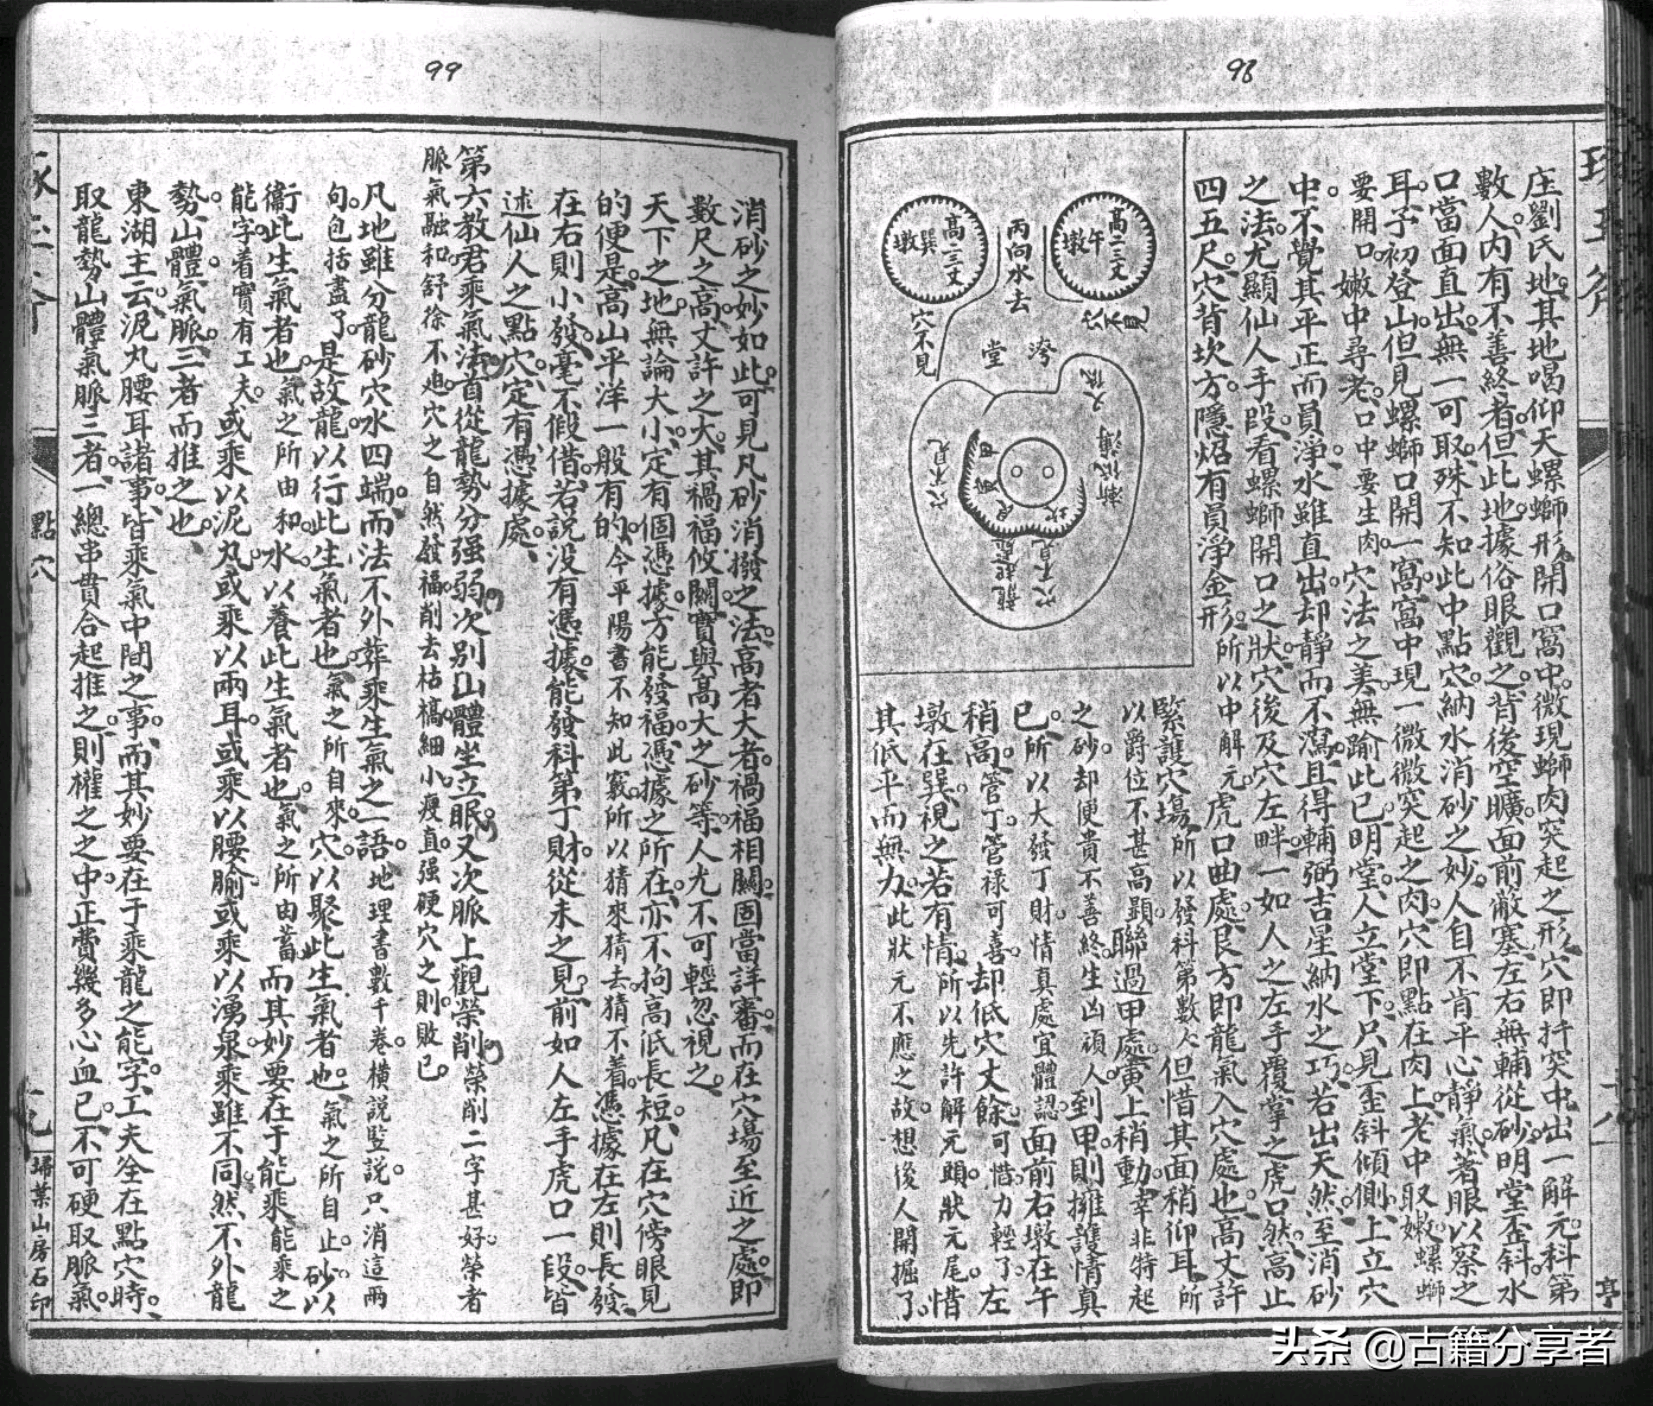 98
庄劉氏地其地喝仰天螺螄形開口窩中微現螄肉突起之形穴即扦突中出一解元科第
數人內有不善終者但此地據俗眼觀之背後空曠面前敝塞左右無輔從砂明堂歪斜水
口當面直出無一可取殊不知此中點穴納水消砂之妙人自不肯平心靜氣著眼以察之
耳子初登山但見螺螄口開一窩窩中現一微微突起之肉穴即點在肉上老中取嫩螺螄
要開口嫩中尋老口中要生肉穴法之美無踰此已明堂人立堂下只見歪斜傾側上立穴
中不覺其平正而員淨水雖直出却靜而不瀉且得輔弼吉星納水之巧若出天然至消砂
之法尤顯仙人手段看螺螄開口之狀穴後及穴左畔一如人之左手覆掌之虎口然高止
四五尺穴背坎方隱炤有員淨金形所以中解元虎口曲處艮方即龍氣入穴處也高丈許
緊護穴塲所以發科第數人但惜其面稍仰耳所
以爵位不甚高顯聯過甲處寅上稍動幸非特起
之砂却便貴不善終生凶頑人到甲則擁護情真
已所以大發丁財情真處宜體認面前右墩在午
稍高管丁管祿可喜却低穴丈餘可惜力輕了左
墩在巽視之若有情所以先許解元頭狀元尾惜
其低平而無力此狀元不應之故想後人開掘了
高二三丈
午墩
穴不見
丙向水去
高二三丈
巽墩
穴不見
堂
穴不見
點穴
亭
99
消砂之妙如此可見凡砂消撥之法高者大者禍福相關固當詳審而在穴塲至近之處即
數尺之高丈許之大其禍福攸關實與高大之砂等人尤不可輕忽視之
天下之地無論大小定有個憑據方能發福憑據之所在亦不拘高低長短凡在穴傍眼見
的便是高山平洋一般有的今平陽書不知此竅所以猜來猜去猜不着憑據在左則長發
在右則小發毫不假借若說没有憑據能發科第丁財從未之見前如人左手虎口一段皆
述仙人之點穴定有憑據處
第六教君乘氣法首從龍勢分强弱次別山體坐立眠又次脈上觀榮削榮削二字甚好榮者
脈氣融和舒徐不迫穴之自然發福削去枯槁細小瘦直强硬穴之則敗已
凡地雖分龍砂穴水四端而法不外葬乘生氣之一語地理書數千卷橫説豎説只消這兩
句包括盡了是故龍以行此生氣者也氣之所自來穴以聚此生氣者也氣之所自止砂以
衛此生氣者也氣之所由和水以養此生氣者也氣之所由蓄而其妙要在于能乘能乘之
能字着實有工夫或乘以泥丸或乘以兩耳或乘以腰腧或乘以湧泉乘雖不同然不外龍
勢山體氣脈三者而推之也
東湖主云泥丸腰耳諸事皆乘氣中間之事而其妙要在于乘龍之能字工夫全在點穴時
取龍勢山體氣脈三者一總串貫合起推之則權之之中正費幾多心血已不可硬取脈氣
掃葉山房石印
头条 @古籍分享者